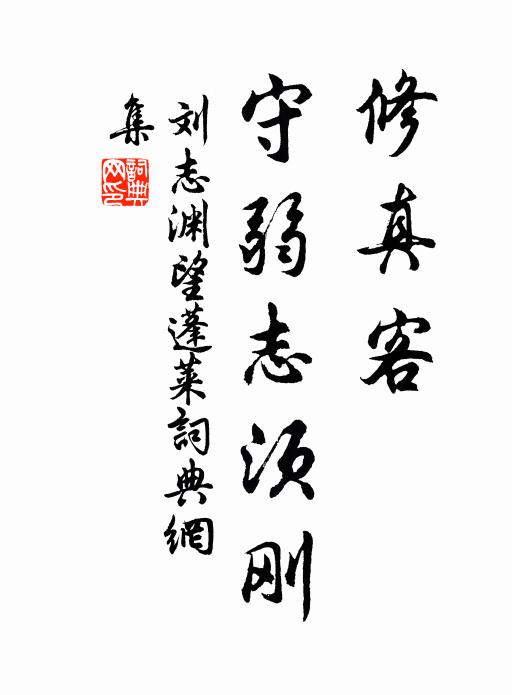 修真客
守弱志须刚
刘志渊望蓬莱詞典網
集
詞典網印